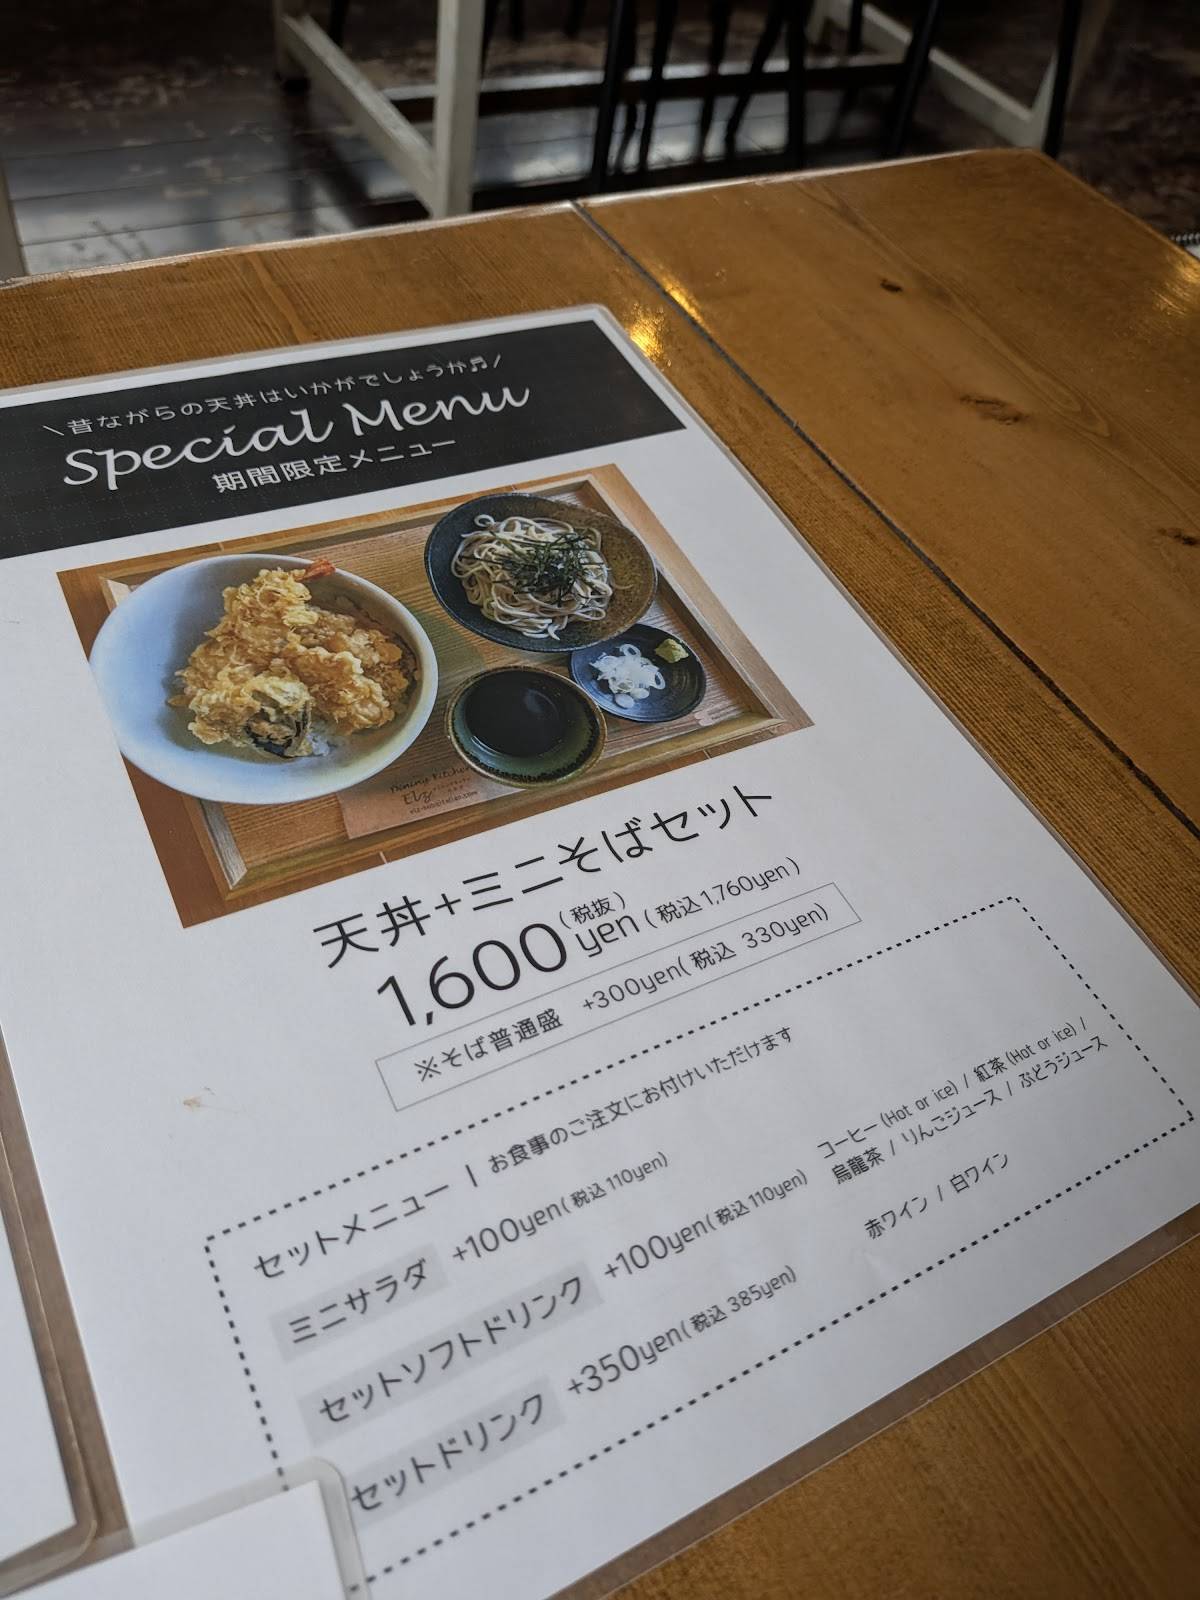 \昔ながらの天丼はいかがでしょうか♬/
Special Menu
期間限定メニュー
Dining Kitchen
Elz
天丼+ミニそばセット
1,600yen(税抜)(税込1,760yen)
※そば普通盛 +300yen(税込 330yen)
セットメニュー | お食事のご注文にお付けいただけます
ミニサラダ +100yen(税込110yen)
セットソフトドリンク +100yen(税込110yen) コーヒー(Hot or ice) / 紅茶(Hot or ice) /
烏龍茶 / りんごジュース / ぶどうジュース
セットドリンク +350yen(税込385yen) 赤ワイン / 白ワイン